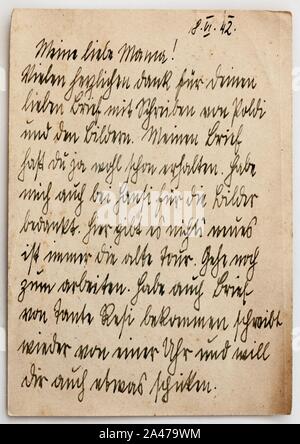 8. VI. 42.
Meine liebe Mama!
Vielen herzlichen dank für deinen
lieben Brief mit Schreiben von Poldi
und den Bildern. Meinen Brief
hast du ja wohl schon erhalten. Habe
mich auch bei für die Bilder
bedankt. Hier gibt es nichts neues
ist immer die alte Tour. Gehe noch
zum arbeiten. Habe auch Brief
von Tante Resi bekommen schreibt
wieder von einer Uhr und will
dir auch etwas schicken.
alamy
Image ID: 2A479WM
www.alamy.com